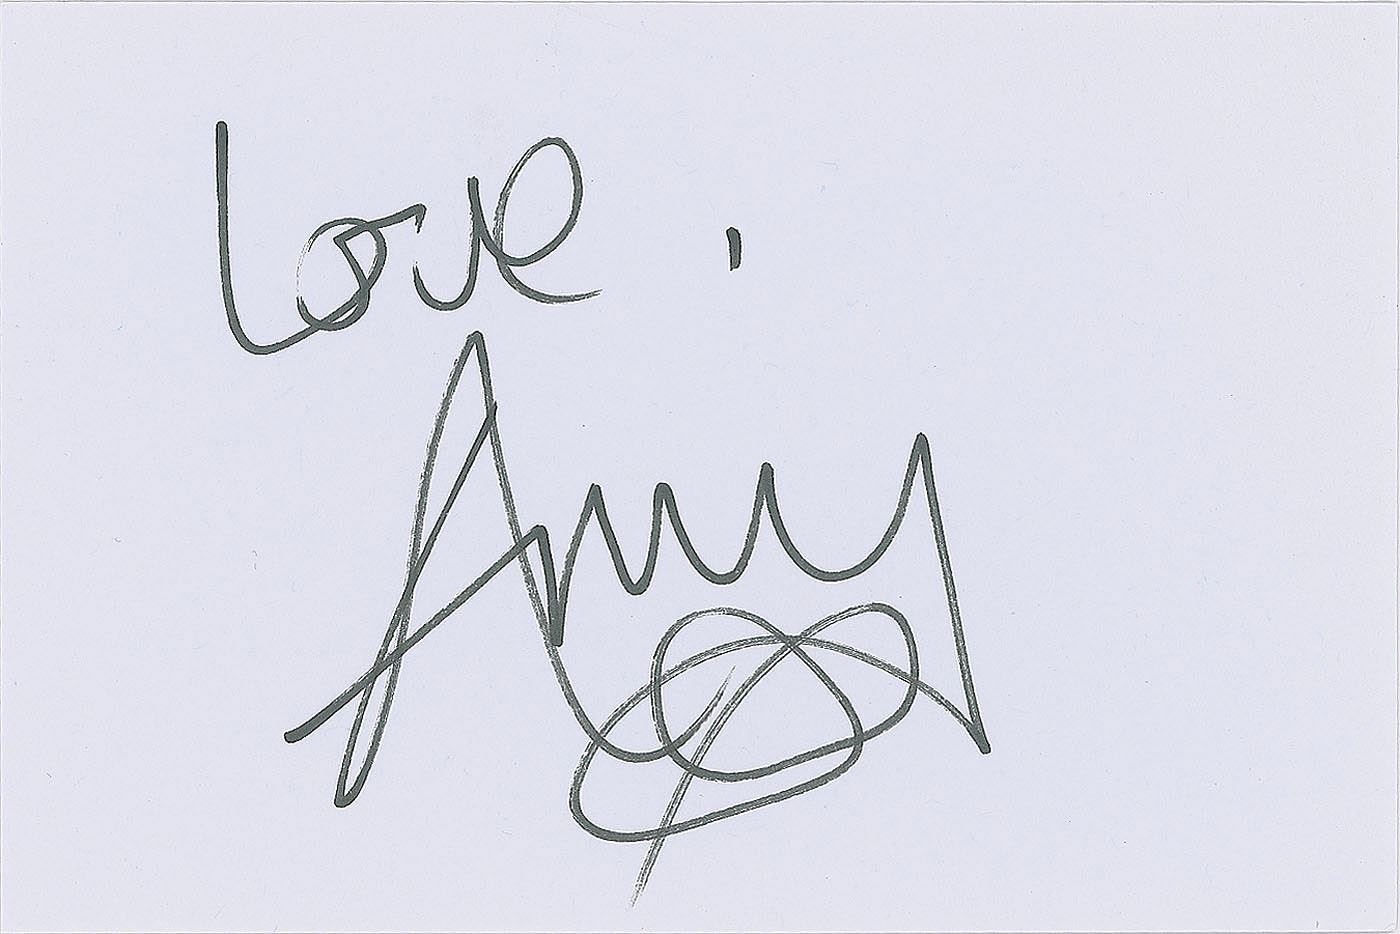 Love
Amy